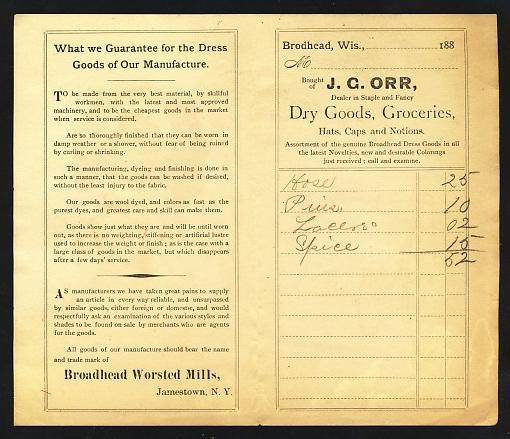 What we Guarantee for the Dress
Goods of Our Manufacture.
TO be made from the very best material, by skillful
workmen, with the latest and most approved
machinery, and to be the cheapest goods in the market
when service is considered.
Are so thoroughly finished that they can be worn in
damp weather or a shower, without fear of being ruined
by curling or shrinking.
The manufacturing, dyeing and finishing is done in
such a manner, that the goods can be washed if desired,
without the least injury to the fabric.
Our goods are wool dyed, and colors as fast as the
purest dyes, and greatest care and skill can make them.
Goods show just what they are and will be until worn
out, as there is no weighting, stiffening or artificial lustre
used to increase the weight or finish; as is the case with a
large class of goods in the market, but which disappears
after a few days' service.
AS manufacturers we have taken great pains to supply
an article in every way reliable, and unsurpassed
by similar goods, either foreign or domestic, and would
respectfully ask an examination of the various styles and
shades to be found on sale by merchants who are agents
for the goods.
All goods of our manufacture should bear the name
and trade mark of
Broadhead Worsted Mills,
Jamestown, N. Y.
Brodhead, Wis., 188
M
Bought of J. G. ORR,
Dealer in Staple and Fancy
Dry Goods, Groceries,
Hats, Caps and Notions.
Assortment of the genuine Broadhead Dress Goods in all
the latest Novelties, new and desirable Colorings
just received; call and examine.
Hose 25
Pins 10
Laces 02
Spice 15
52